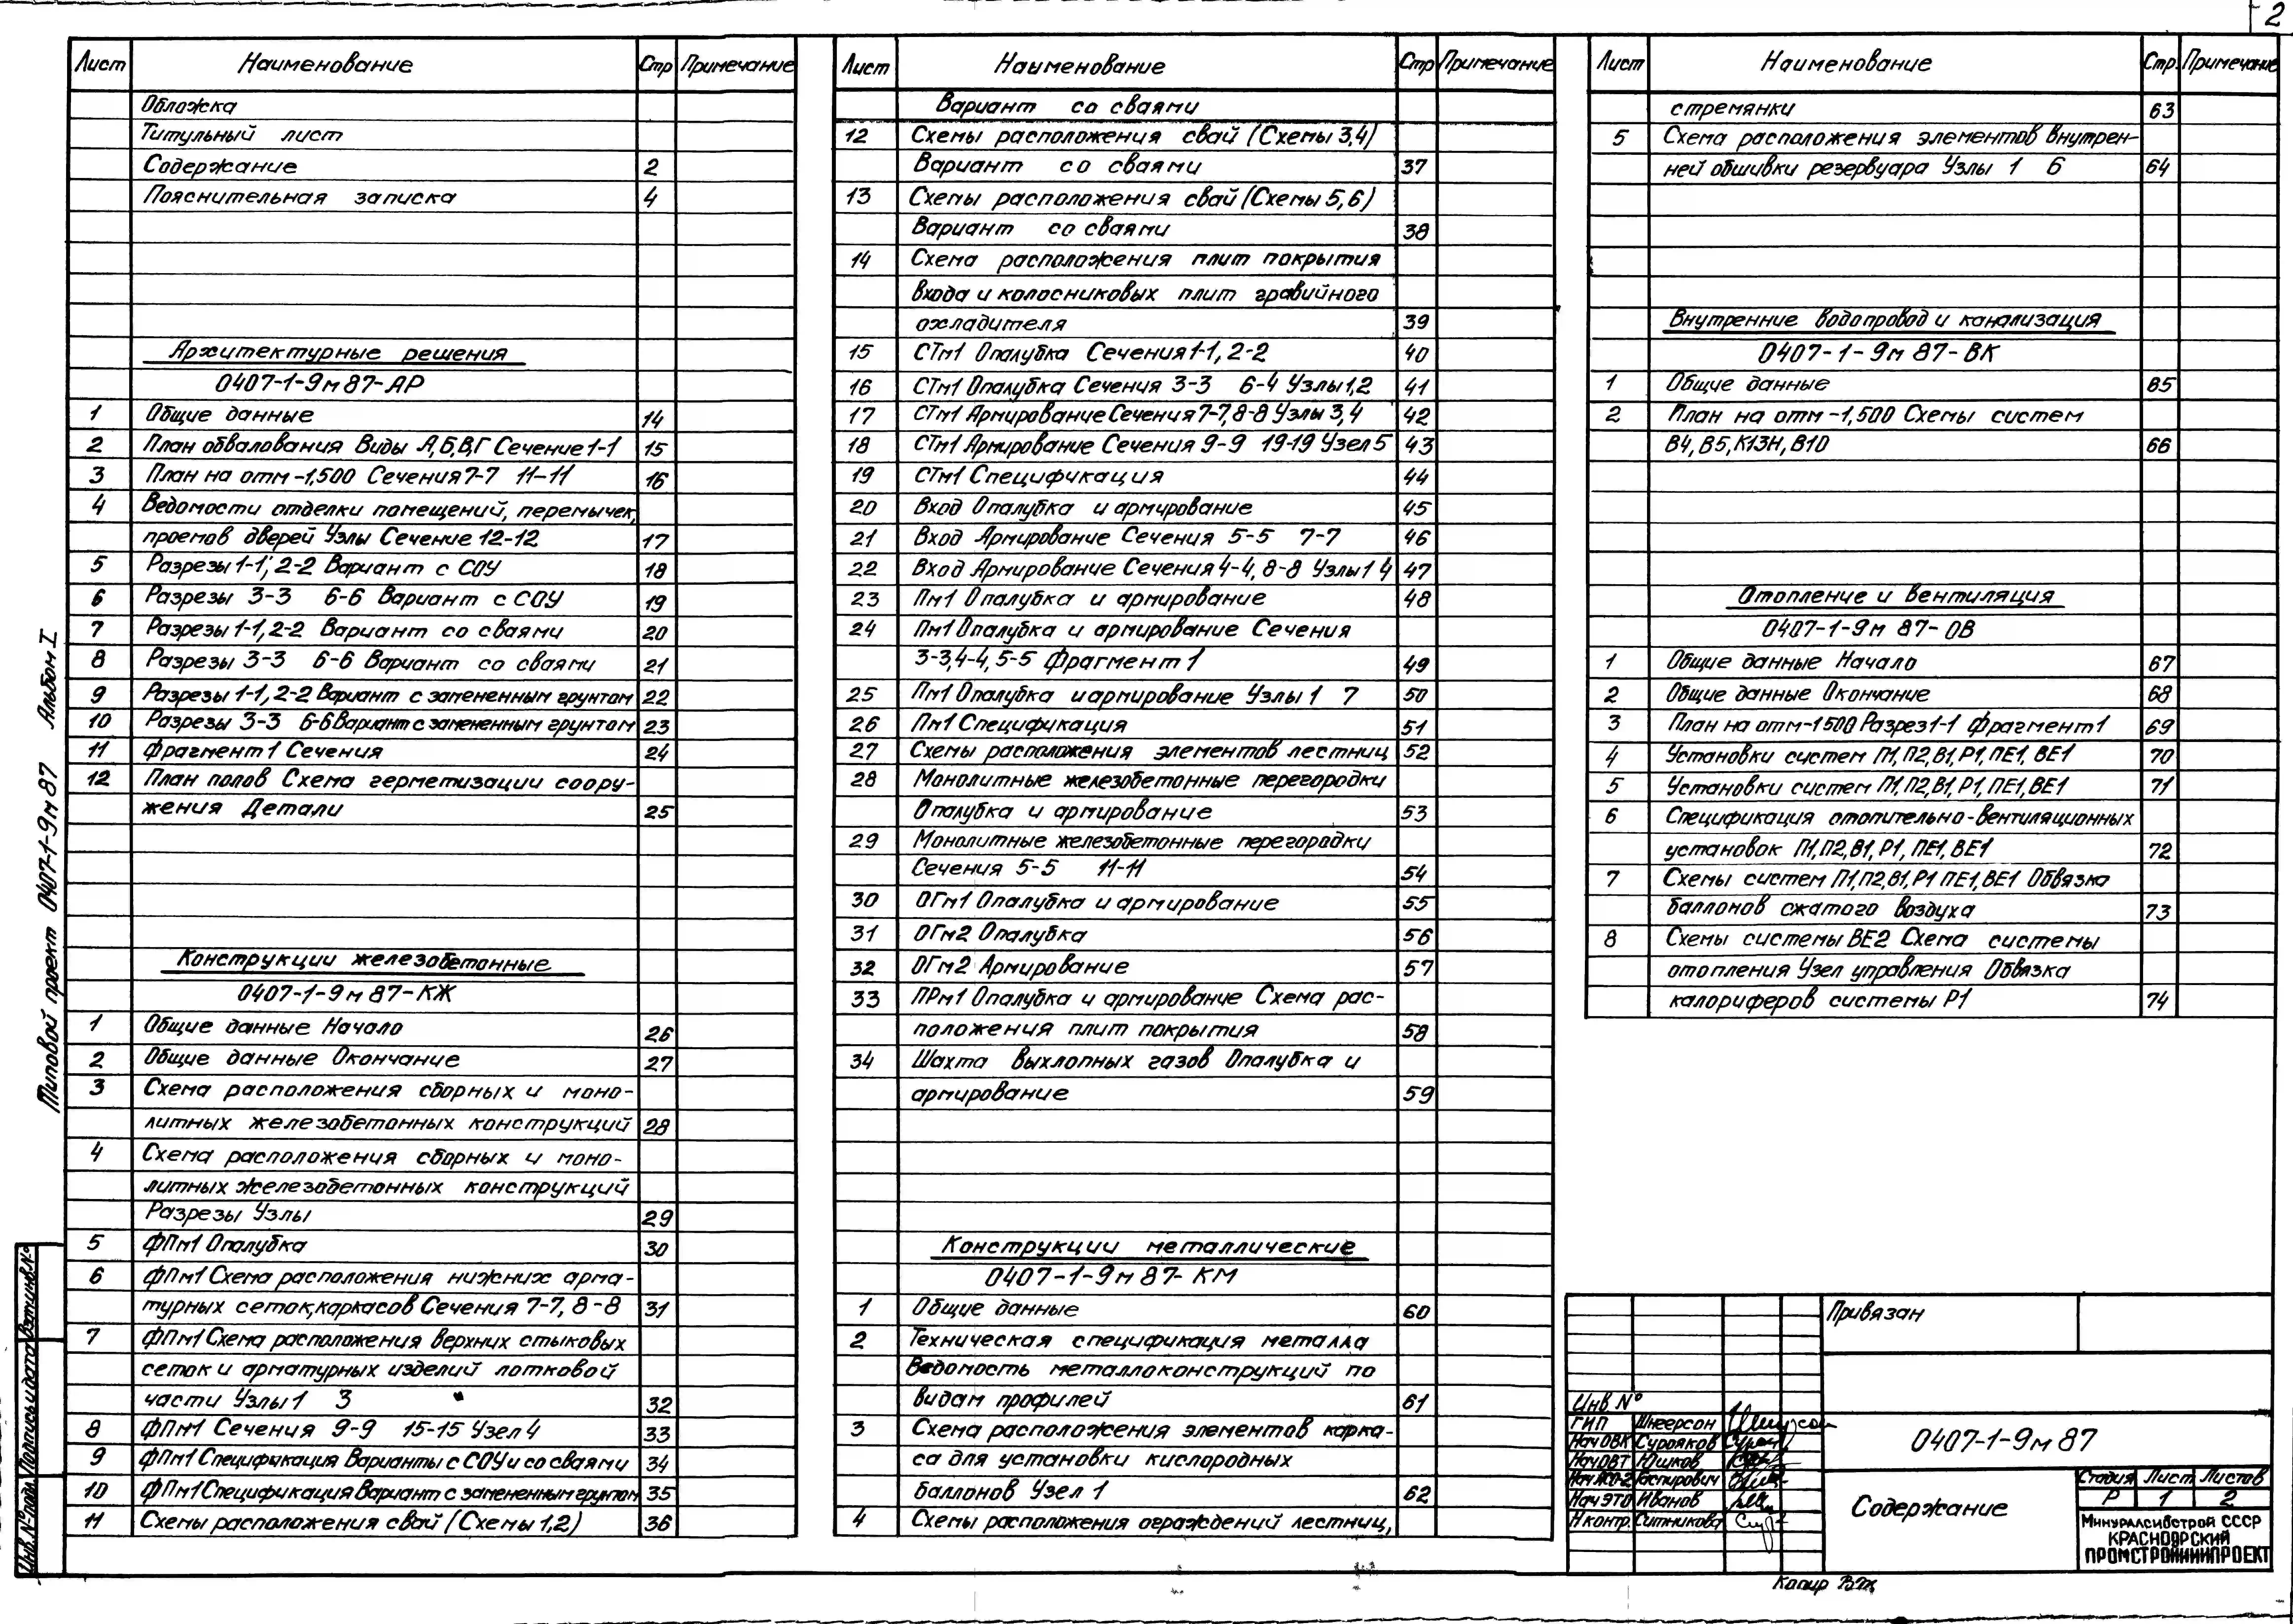 2
Лист Наименование Стр Примечание
Обложка
Титульный лист
Содержание 2
Пояснительная записка 4
Архитектурные решения
0407-1-9м87-АР
1 Общие данные 14
2 План обвалования Виды А,Б,В,Г Сечение 1-1 15
3 План на отм -1,500 Сечения 7-7 11-11 16
4 Ведомости отделки помещений, перемычек,
проемов дверей Узлы Сечение 12-12 17
5 Разрезы 1-1, 2-2 Вариант с СОУ 18
6 Разрезы 3-3 6-6 Вариант с СОУ 19
7 Разрезы 1-1, 2-2 Вариант со сваями 20
8 Разрезы 3-3 6-6 Вариант со сваями 21
9 Разрезы 1-1, 2-2 Вариант с замененным грунтом 22
10 Разрезы 3-3 6-6 Вариант с замененным грунтом 23
11 Фрагмент 1 Сечения 24
12 План полов Схема герметизации соору-
жения Детали 25
Конструкции железобетонные
0407-1-9м87-КЖ
1 Общие данные Начало 26
2 Общие данные Окончание 27
3 Схема расположения сборных и моно-
литных железобетонных конструкций 28
4 Схема расположения сборных и моно-
литных железобетонных конструкций
Разрезы Узлы 29
5 ФПм1 Опалубка 30
6 ФПм1 Схема расположения нижних арма-
турных сеток, каркасов Сечения 7-7, 8-8 31
7 ФПм1 Схема расположения верхних стыковых
сеток и арматурных изделий лотковой
части Узлы 1 3 32
8 ФПм1 Сечения 9-9 15-15 Узел 4 33
9 ФПм1 Спецификация Варианты с СОУ и со сваями 34
10 ФПм1 Спецификация Вариант с замененным грунтом 35
11 Схемы расположения свай (Схемы 1,2) 36
Лист Наименование Стр Примечание
Вариант со сваями
12 Схемы расположения свай (Схемы 3,4)
Вариант со сваями 37
13 Схемы расположения свай (Схемы 5,6)
Вариант со сваями 38
14 Схема расположения плит покрытия
входа и колосниковых плит гравийного
охладителя 39
15 СТм1 Опалубка Сечения 1-1, 2-2 40
16 СТм1 Опалубка Сечения 3-3 6-4 Узлы 1,2 41
17 СТм1 Армирование Сечения 7-7, 8-8 Узлы 3,4 42
18 СТм1 Армирование Сечения 9-9 19-19 Узел 5 43
19 СТм1 Спецификация 44
20 Вход Опалубка и армирование 45
21 Вход Армирование Сечения 5-5 7-7 46
22 Вход Армирование Сечения 4-4, 8-8 Узлы 1 4 47
23 Пм1 Опалубка и армирование 48
24 Пм1 Опалубка и армирование Сечения
3-3, 4-4, 5-5 Фрагмент 1 49
25 Пм1 Опалубка и армирование Узлы 1 7 50
26 Пм1 Спецификация 51
27 Схемы расположения элементов лестниц 52
28 Монолитные железобетонные перегородки
Опалубка и армирование 53
29 Монолитные железобетонные перегородки
Сечения 5-5 11-11 54
30 ОГм1 Опалубка и армирование 55
31 ОГм2 Опалубка 56
32 ОГм2 Армирование 57
33 ПРм1 Опалубка и армирование Схема рас-
положения плит покрытия 58
34 Шахта выхлопных газов Опалубка и
армирование 59
Конструкции металлические
0407-1-9м87-КМ
1 Общие данные 60
2 Техническая спецификация металла
Ведомость металлоконструкций по
видам профилей 61
3 Схема расположения элементов карка-
са для установки кислородных
баллонов Узел 1 62
4 Схемы расположения ограждений лестниц,
Лист Наименование Стр. Примечание
стремянки 63
5 Схема расположения элементов внутрен-
ней обшивки резервуара Узлы 1 6 64
Внутренние водопровод и канализация
0407-1-9м87-ВК
1 Общие данные 65
2 План на отм -1,500 Схемы систем
В4, В5, К13Н, В10 66
Отопление и вентиляция
0407-1-9м 87-ОВ
1 Общие данные Начало 67
2 Общие данные Окончание 68
3 План на отм-1500 Разрез 1-1 Фрагмент 1 69
4 Установки систем П1, П2, В1, Р1, ПЕ1, ВЕ1 70
5 Установки систем П1, П2, В1, Р1, ПЕ1, ВЕ1 71
6 Спецификация отопительно-вентиляционных
установок П1, П2, В1, Р1, ПЕ1, ВЕ1 72
7 Схемы систем П1, П2, В1, Р1 ПЕ1, ВЕ1 Обвязка
баллонов сжатого воздуха 73
8 Схемы системы ВЕ2 Схема системы
отопления Узел управления Обвязка
калориферов системы Р1 74
Типовой проект 0407-1-9м87 Альбом I
Инв.№подл. Подпись и дата Взам.инв.№
Привязан
Инв №
ГИП Шнеерсон
Нач ОВК Суровков
Нач ОВТ Юшков
Нач АСО-2 Гаспирович
Нач ЭТО Иванов
Н контр. Ситникова
0407-1-9м87
Содержание
Стадия Лист Листов
Р 1 2
Минуралсибстрой СССР
КРАСНОЯРСКИЙ
ПРОМСТРОЙНИИПРОЕКТ
Копир